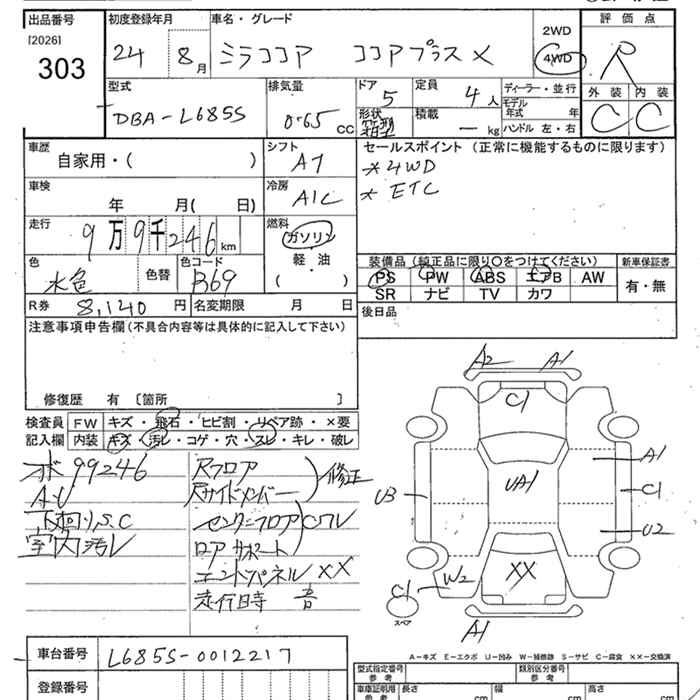 出品番号 初度登録年月 車名・グレード 2WD 評価点
[2026] 24 8月 ミラココア ココアプラスX 4WD R
303
型式 排気量 ドア 5 定員 4人 ディーラー・並行 外装 内装
DBA-L685S 0.65 CC 形状 箱型 積載 — kg モデル年式 年 C C
ハンドル 左・右
車歴 シフト セールスポイント(正常に機能するものに限ります)
自家用・( ) AT *4WD
車検 冷房 *ETC
年 月( 日) A/C
走行 燃料
9万9千246km ガソリン
軽・油
( )
色 色替 色コード 装備品(純正品に限り○をつけてください) 新車保証書
水色 B69 PS PW ABS エアB AW 有・無
SR ナビ TV カワ
R券 8,140円 名変期限 月 日 後日品
注意事項申告欄(不具合内容等は具体的に記入して下さい)
修復歴 有 〔箇所 〕
検査員 FW キズ・飛石・ヒビ割・リペア跡・×要
記入欄 内装 キズ・汚レ・コゲ・穴・スレ・キレ・破レ
99246 Rフロア
AU Rサイドメンバー 修正
下回りS.C センターフロア C ワレ
室内汚レ ロアサポート
エンドパネル XX
走行時 音
A2 A1
C1
UA1
A1
U3 C1
U2
XX
W2
C1
スペア
A1
A-キズ E-エクボ U-凹み W-補修跡 S-サビ C-腐食 XX-交換済
車台番号 L685S-0012217
登録番号
型式指定番号 参考 類別区分番号 参考
車庫証明用 参考 長さ cm 幅 cm 高さ cm